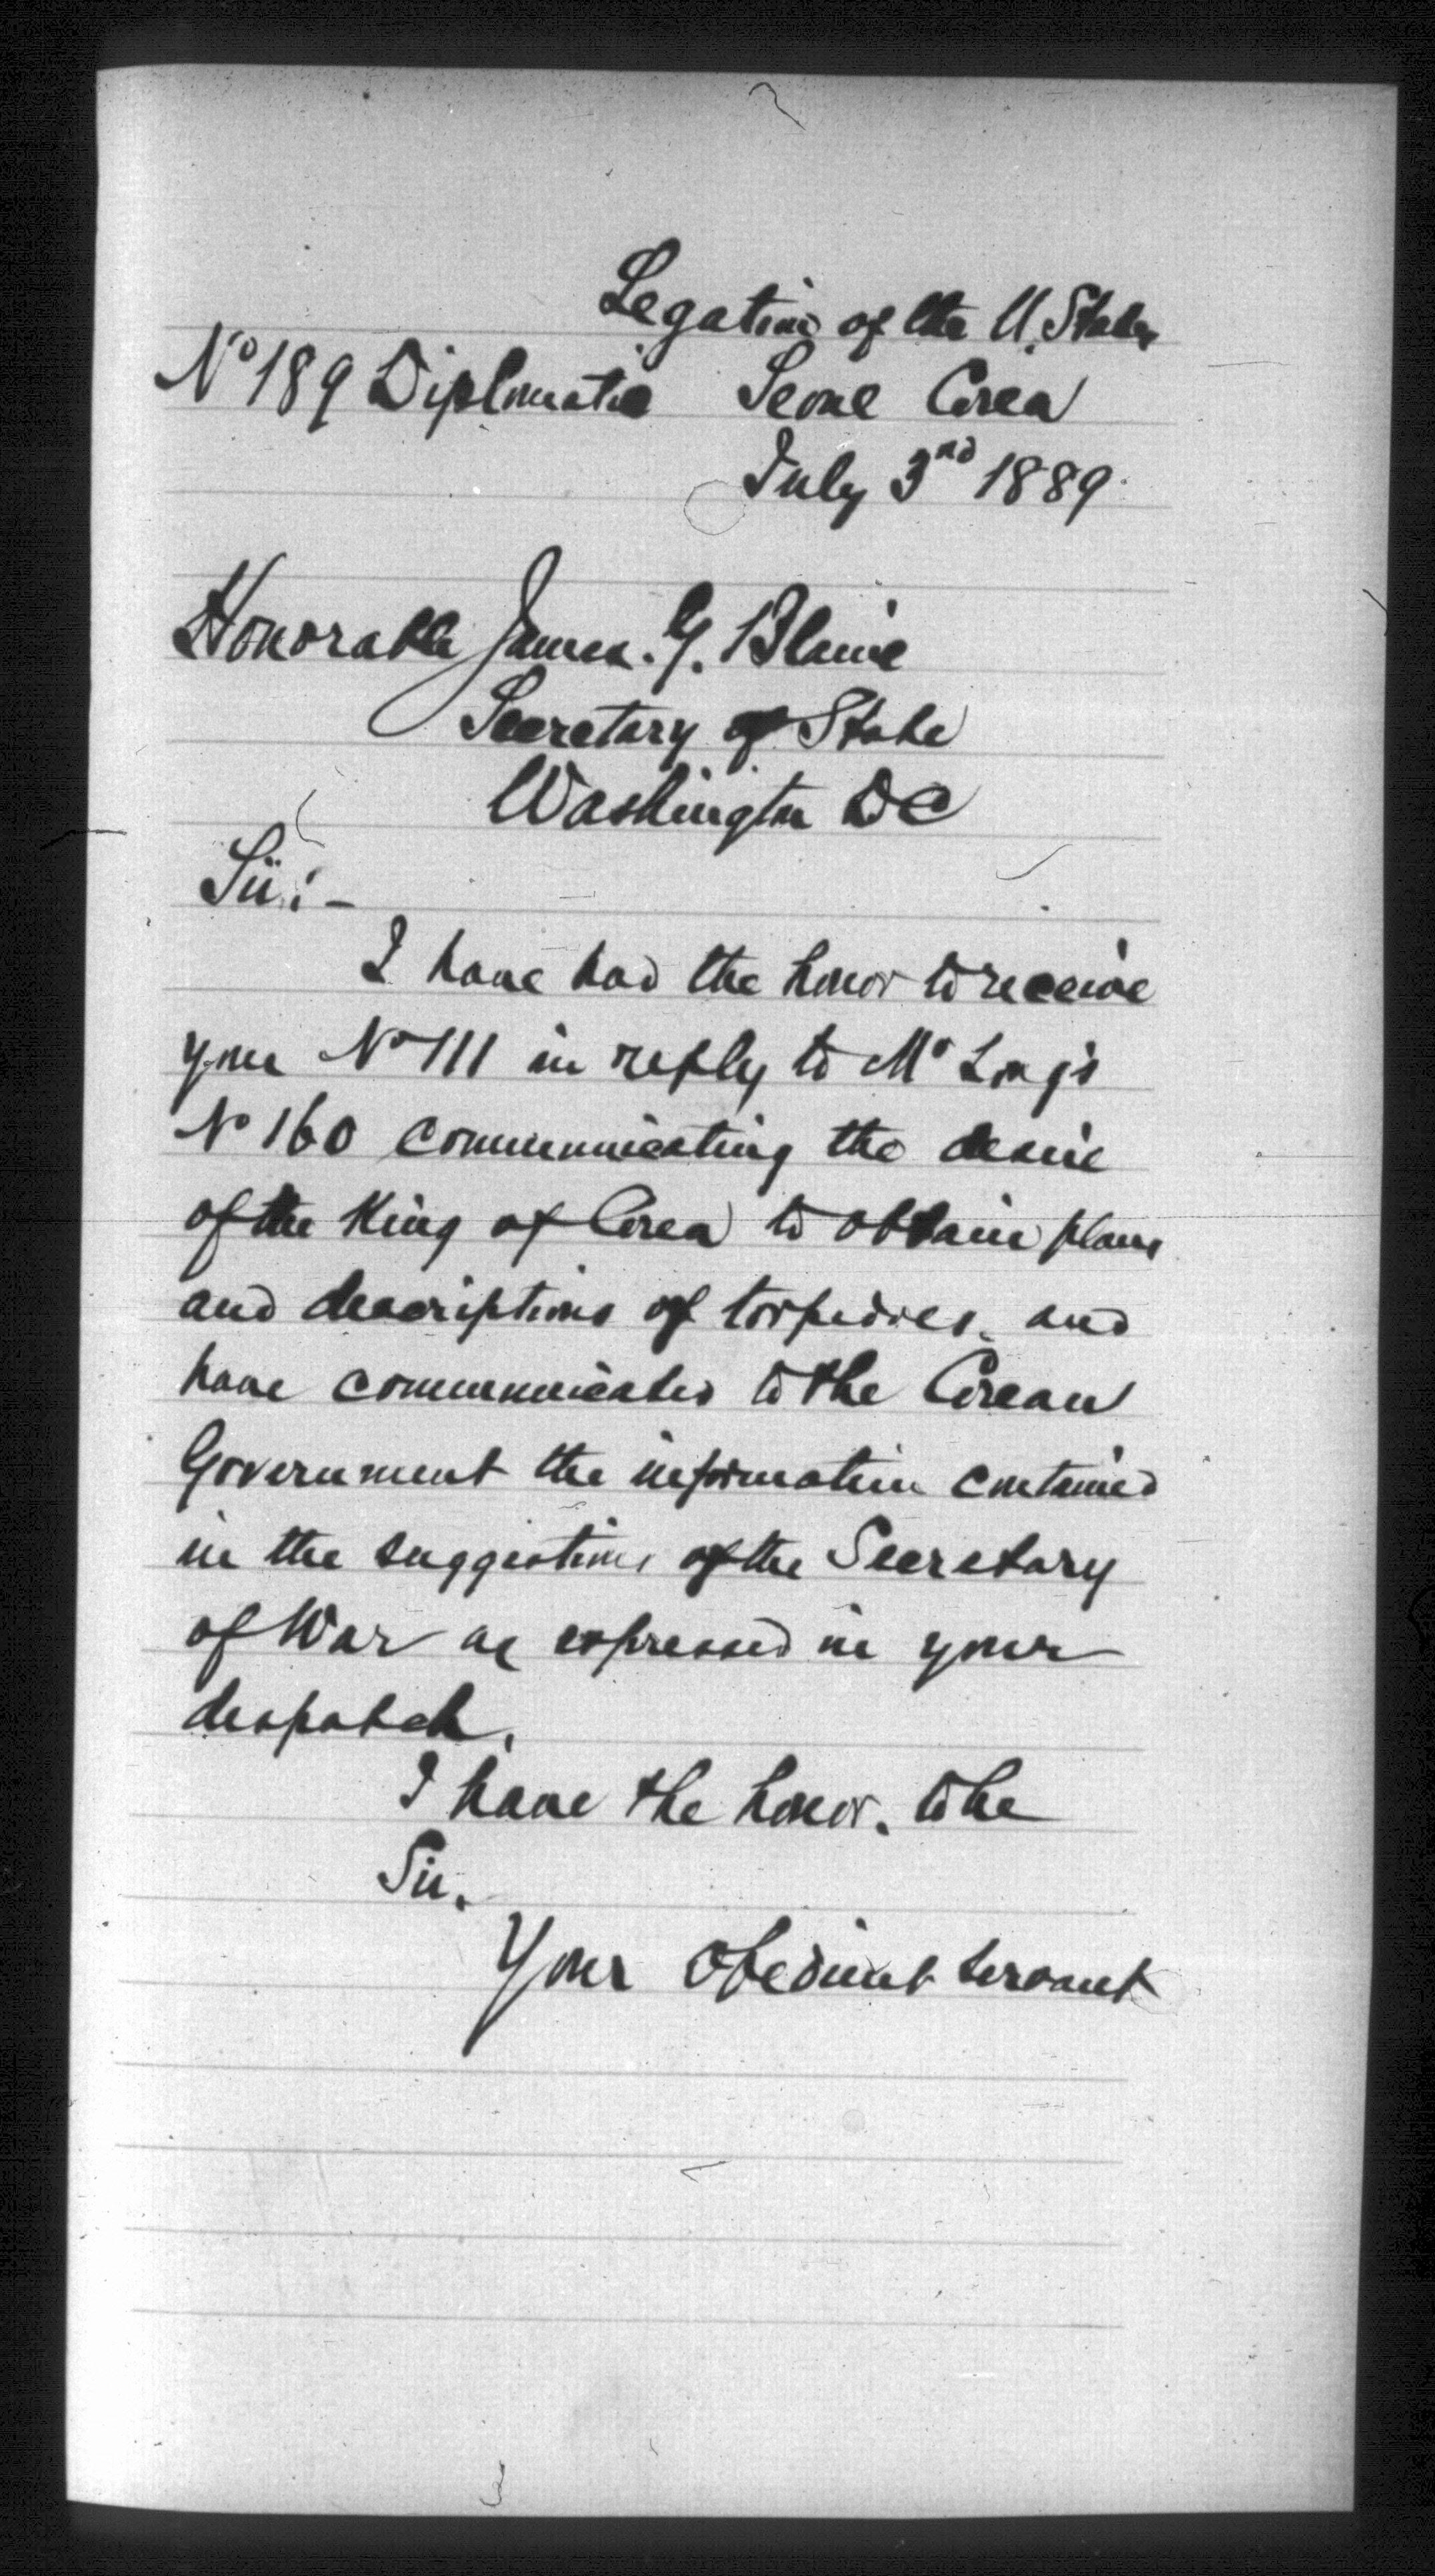 Legation of the U. States
No 189 Diplomatic Seoul Corea
July 3rd 1889.
Honorable James. G. Blaine
Secretary of State
Washington DC
Sir:-
I have had the honor to receive
your No 111 in reply to Mr Long's
No 160 communicating the desire
of the King of Corea to obtain plans
and descriptions of torpedoes. and
have communicated to the Corean
Government the information contained
in the suggestions of the Secretary
of War as expressed in your
despatch.
I have the honor. to be
Sir.
Your obedient servant